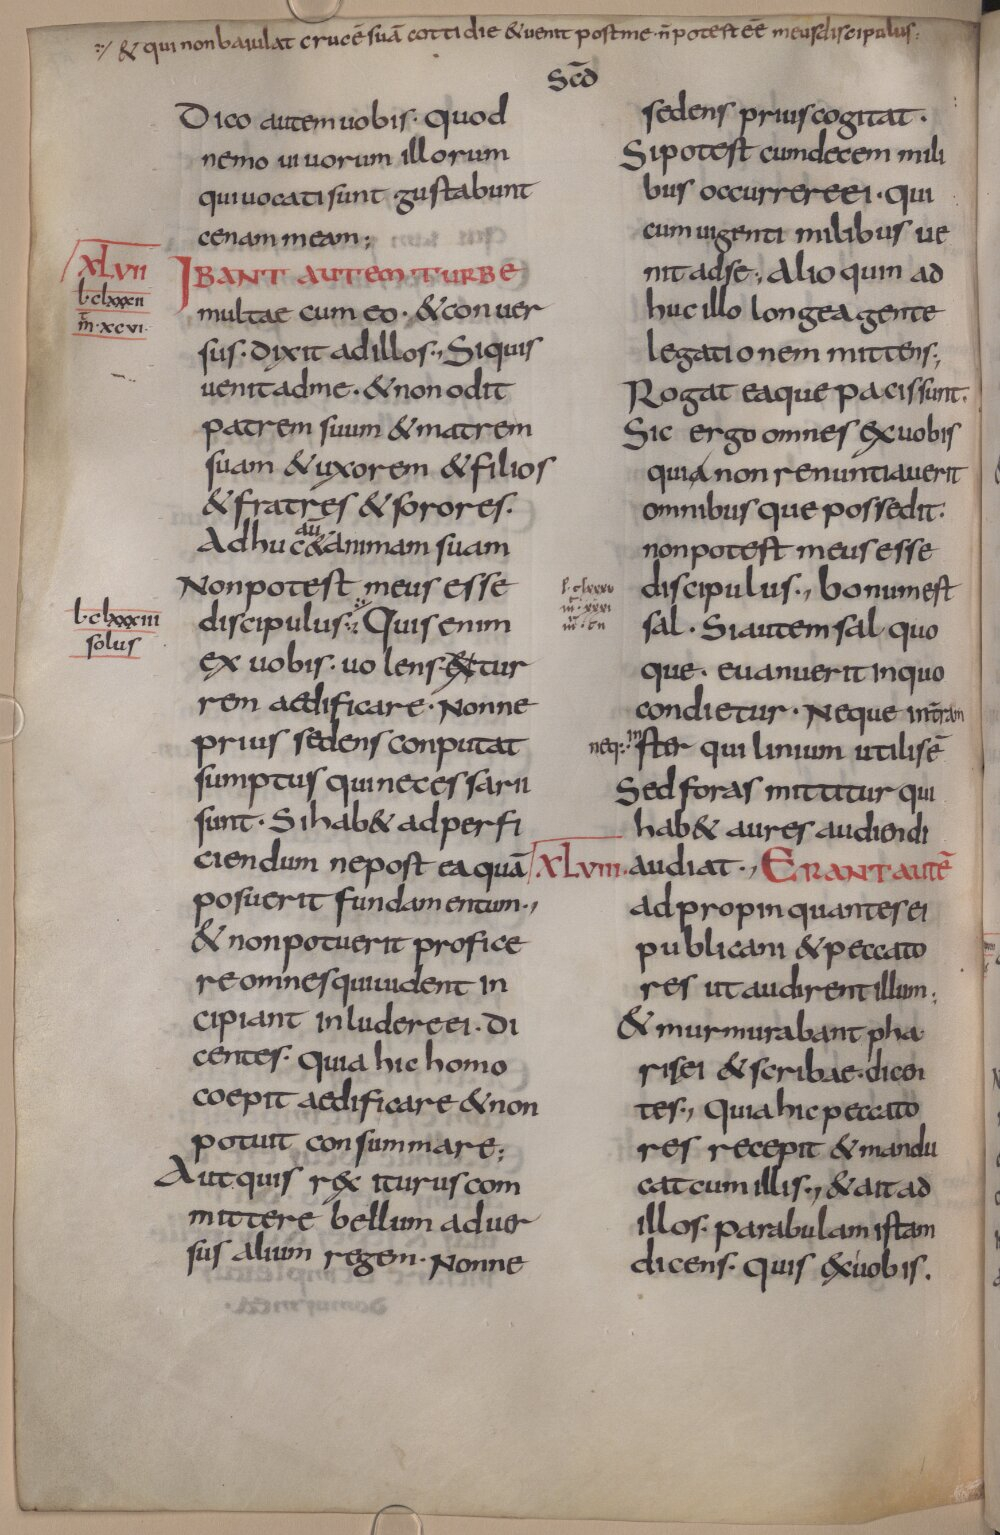 & qui non baiulat crucē suā cottidie & uenit post me · n̄ potest eē meus discipulus ;
Scd̄
Dico autem uobis · quod
nemo uiuorum illorum
qui uocati sunt · gustabunt
cenam meam ;
XLVII
l · clxxxii
m̄ · xcvi ·
IBANT AUTEM TURBE
multae cum eo · & conuer
sus · dixit ad illos · , Si quis
uenit ad me · & non odit
patrem suum & matrem
suam & uxorem & filios
& fratres & sorores ·
aū
Adhuc & animam suam
Non potest meus esse
l · clxxxiii
solus
discipulus · , Quis enim
ex uobis · uolens & tur
rem aedificare · Nonne
prius sedens conputat
sumptus qui necessarii
sunt · Si hab& ad perfi
ciendum ne post ea quā
posuerit fundamentum · ,
& non potuerit profice
re omnes qui uident in
cipiant inludere ei · di
centes · quia hic homo
coepit aedificare & non
potuit consummare ;
Aut quis rex iturus com
mittere bellum aduer
sus alium regem · Nonne
sedens prius cogitat ·
Si potest cum decem mili
bus occurrere ei · qui
cum uigenti milibus ue
nit ad se ; Alio quin ad
huc illo longe agente
legationem mittens ;
Rogat ea que pacis sunt ·
Sic ergo omnes ex uobis
quia non renuntiauerit
omnibus que possedit ·
non potest meus esse
discipulus · , bonum est
sal · Si autem sal quo
que · euanuerit in quo
condietur · Neque in t̄ram
neq : in ster qui linium utilis ē
Sed foras mittitur qui
hab& aures audiendi
XLVIII · audiat · , ERANT AUTĒ
adpropinquantes ei
publicani & peccato
res ut audirent illum ;
& murmurabant pha
risei & scribae · dicen
tes · , Quia hic peccato
res recepit & mandu
cat cum illis · , & ait ad
illos · parabulam istam
dicens · quis ex uobis ·